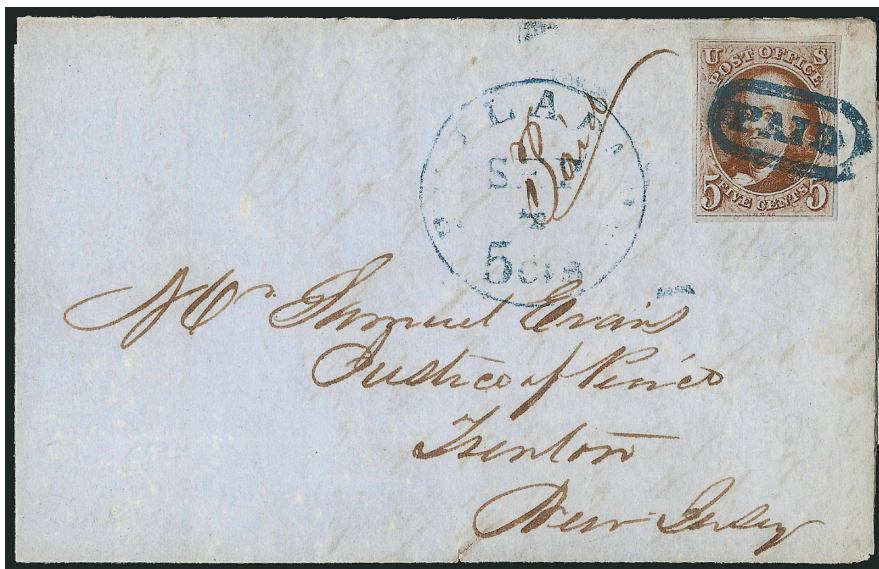 U S
POST OFFICE
PAID
5 FIVE CENTS 5
PHILADA
SEP
5 cts
Paid
Mr. Samuel Evans
Justice of
Trenton
New Jersey